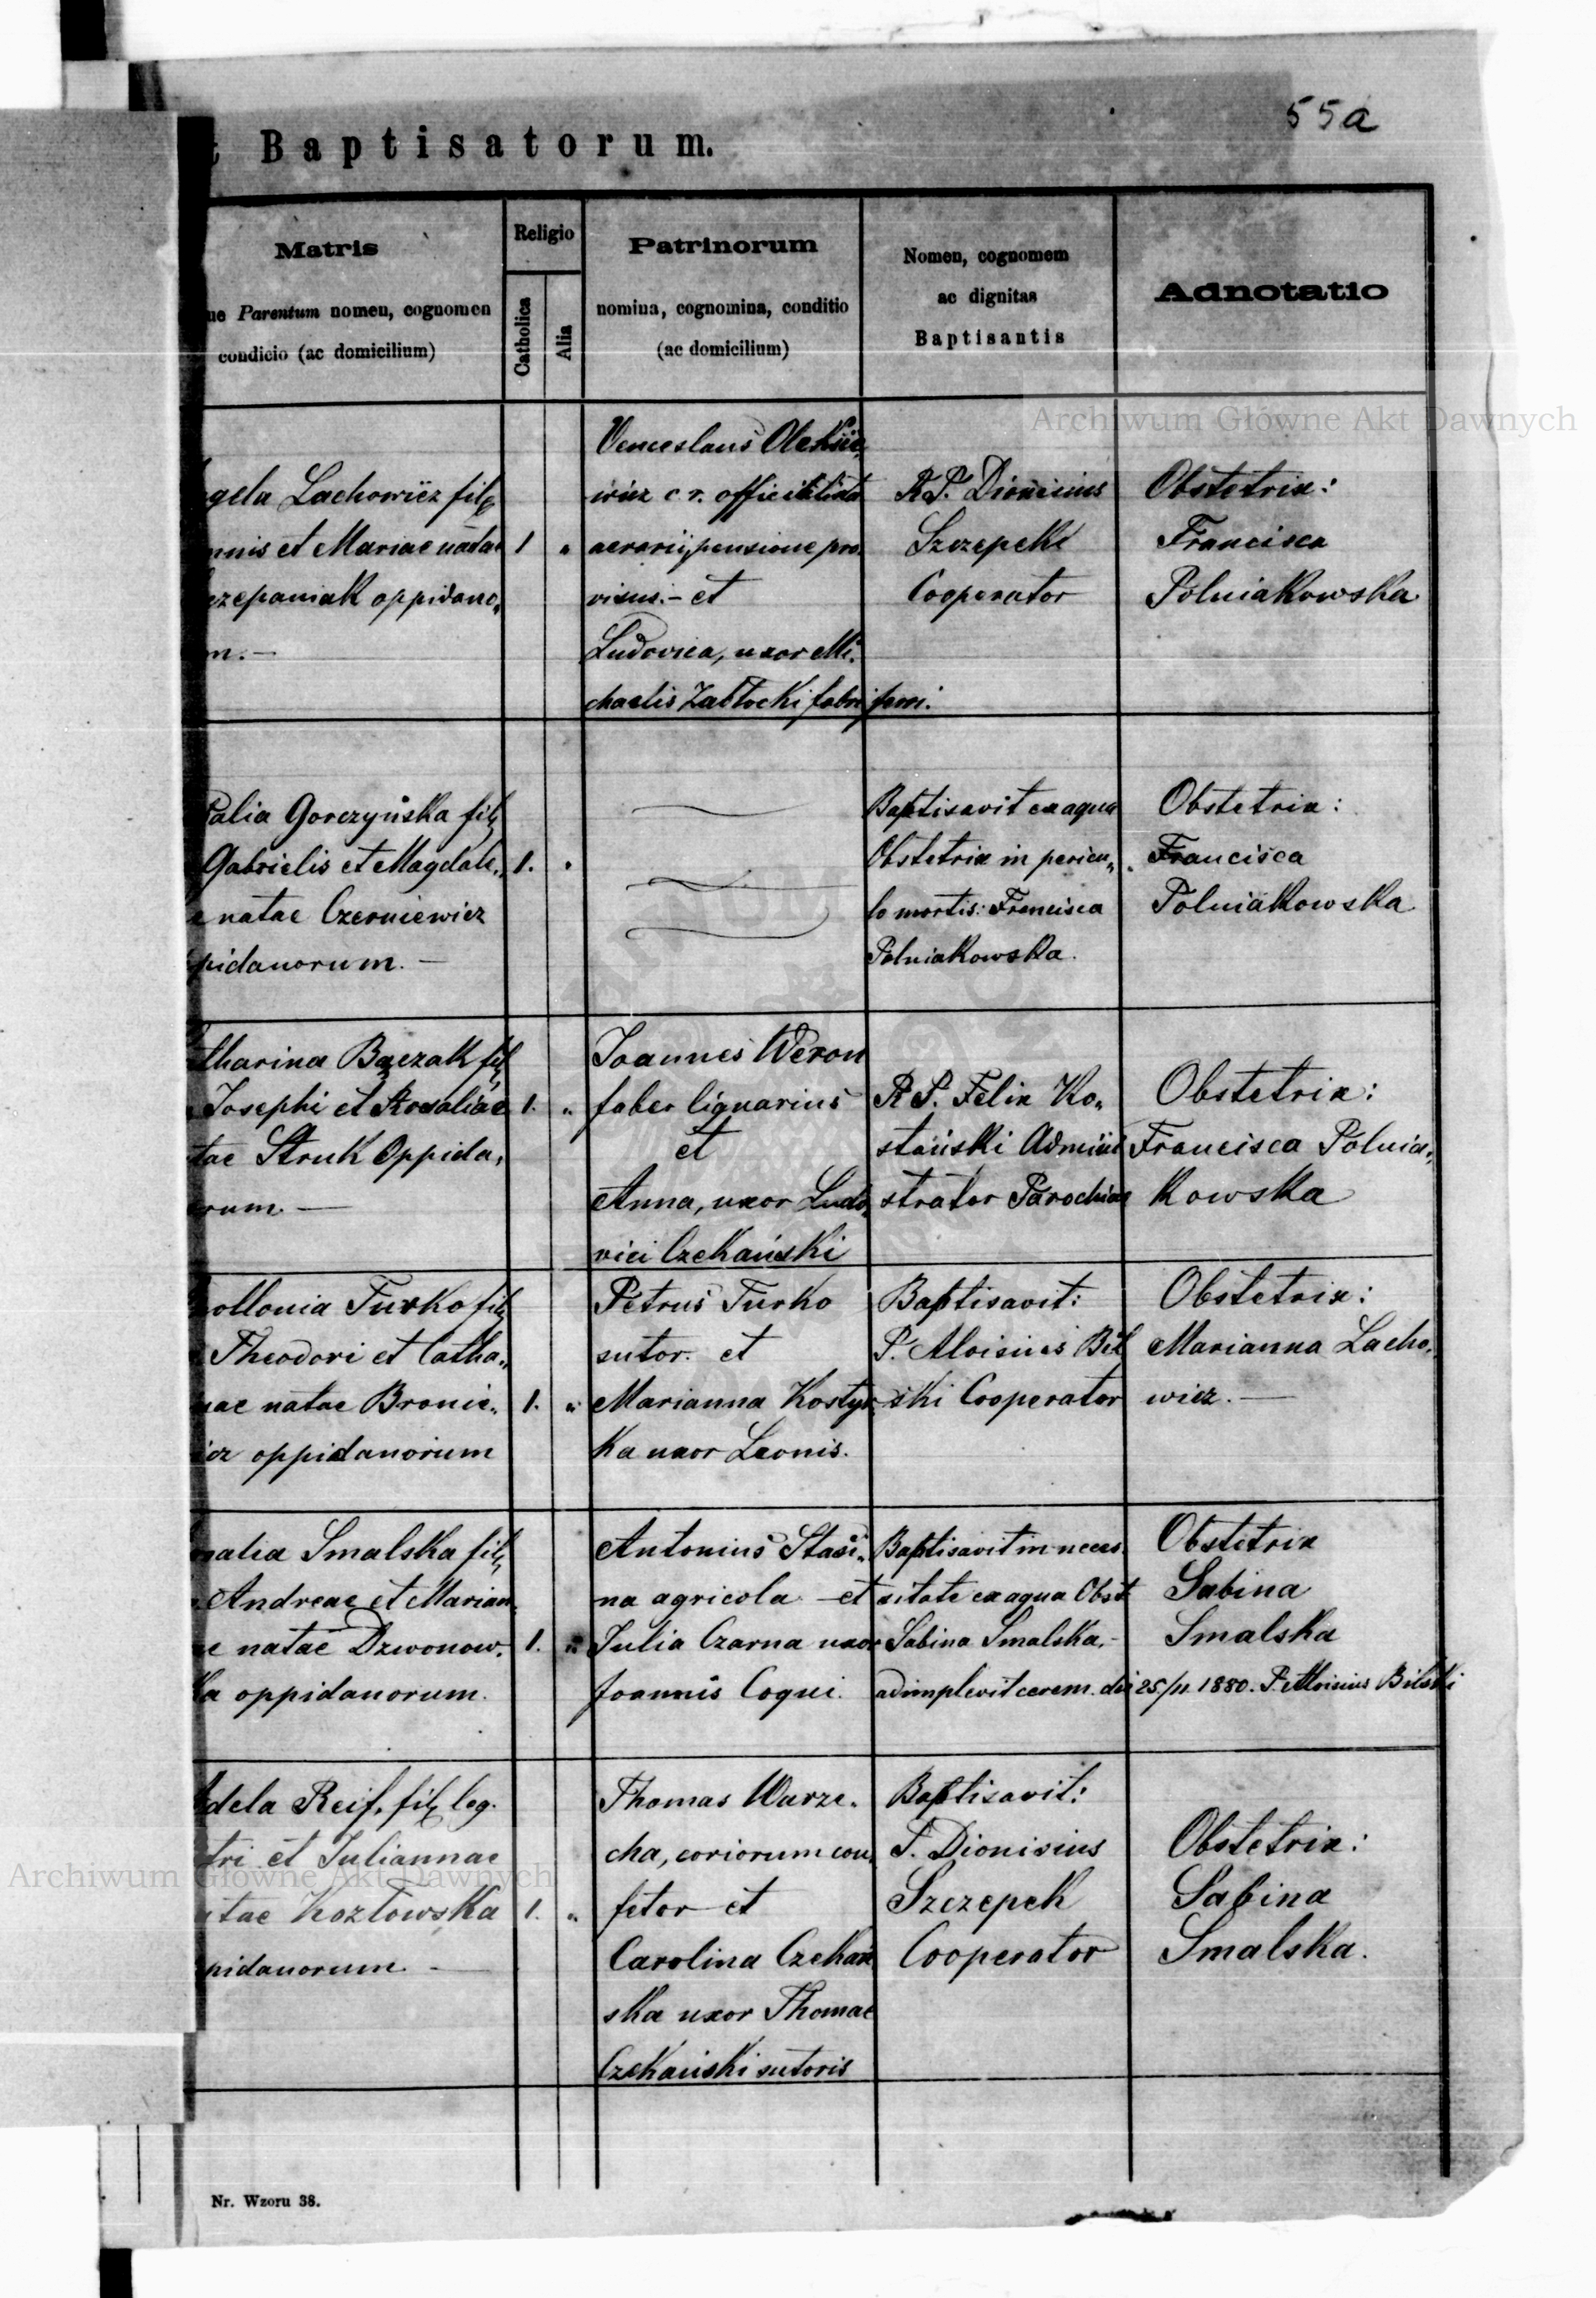 55a
t Baptisatorum.
Matris
ue Parentum nomen, cognomen
condicio (ac domicilium)
Religio
Catholica
Alia
Patrinorum
nomina, cognomina, conditio
(ac domicilium)
Nomen, cognomem
ac dignitas
Baptisantis
Adnotatio
Archiwum Główne Akt Dawnych
gela Lachowicz fil
nnis et Mariae natae
czepaniak oppidano„
m.—
1 "
Venceslaus Olekie„
wicz c. r.
aerarii, pensione pro„
visus.— et
Ludovica, uxor Mi„
chaelis Zabłocki fabri ferri.
R.P. Dionisius
Szczepek
Cooperator
Obstetrix:
Francisca
Polniakowska
alia Gorczyńska fil
Gabrielis et Magdale„
e natae Czerniewicz
pidanorum.—
1. "
Baptisavit ex aqua
Obstetrix in pericu„
lo mortis: Francisca
Polniakowska.
Obstetrix:
Francisca
Polniakowska
tharina Bączak fil
Josephi et Rosaliae
tae Struk Oppida„
orum.—
1. "
Joannes Weron
faber lignarius
et
Anna, uxor Ludo„
vici Czekański
R.P. Felix Ko„
stański Admini
strator Parochiae
Obstetrix:
Francisca Polnia„
kowska
ollonia Turko fil
Theodori et Catha„
nae natae Bronie„
icz oppidanorum
1. "
Petrus Turko
sutor. et
Marianna Kostyr„
ka uxor Leonis.
Baptisavit:
P. Aloisius Bil
ski Cooperator
Obstetrix:
Marianna Lacho„
wicz.—
malia Smalska fil
Andreae et Marian„
ae natae Dzwonow„
ka oppidanorum.
1. "
Antonius Stasi„
na agricola — et
Julia Czarna uxor
Joannis Coqui.
Baptisavit in neces„
sitate ex aqua Obst
Sabina Smalska,—
adimplevit cerem. die 25/11 1880. P. Aloisius Bilski
Obstetrix
Sabina
Smalska
Adela Reif, fil leg.
tri et Juliannae
atae Kozłowska
pidanorum.—
1. "
Thomas Warze„
cha, coriorum con„
fetor et
Carolina Czekań
ska uxor Thomae
Czekański sutoris
Baptisavit:
P. Dionisius
Szczepek
Cooperator
Obstetrix:
Sabina
Smalska.
Archiwum Główne Akt Dawnych
Nr. Wzoru 38.